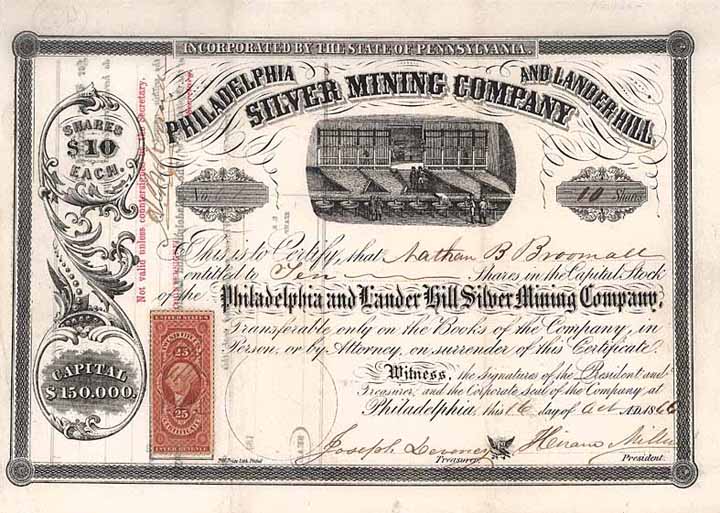 INCORPORATED BY THE STATE OF PENNSYLVANIA.
PHILADELPHIA AND LANDER HILL
SILVER MINING COMPANY
SHARES
$10
EACH.
No.
10 Shares
Not valid unless countersigned by the Secretary.
This is to Certify, that Nathan B Broomall
entitled to Ten Shares in the Capital Stock
of the Philadelphia and Lander Hill Silver Mining Company,
Transferable only on the Books of the Company, in
Person, or by Attorney, on surrender of this Certificate.
Witness, the signatures of the President and
Treasurer, and the Corporate Seal of the Company at
Philadelphia, this 16 day of Oct AD 1866
CAPITAL
$150.000.
25
25
Joseph
Treasurer.
Hiram Miller
President.